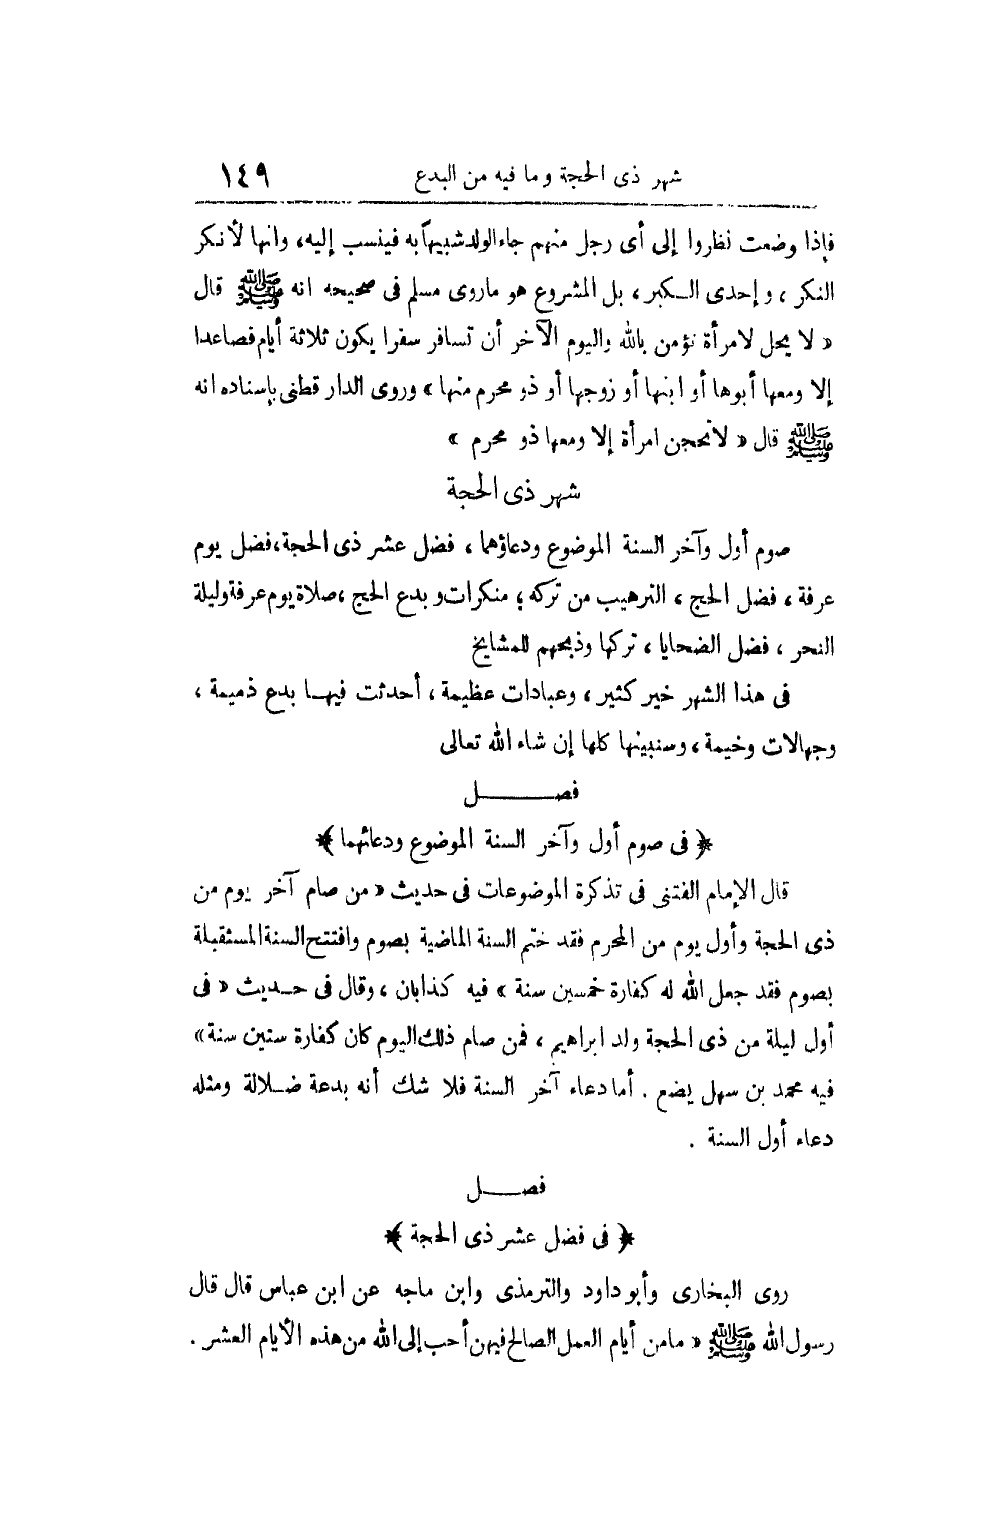 شهر ذى الحجة وما فيه من البدع ١٤٩
فإذا وضعت نظاروا إلى أى رجل منهم جاء الولد شبيهاً به فينسب إليه، وانها لأنكر
النكر ، وإحدى الـكبر ، بل المشروع هو ماروى مسلم فى صحيحه انه ﷺ قال
« لا يحل لامرأة تؤمن بالله واليوم الآخر أن تسافر سفرا يكون ثلاثة أيام فصاعدا
إلا ومعها أبوها أو ابنها أو زوجها أو ذو محرم منها » وروى الدار قطنى بإسناده انه
ﷺ قال « لاتحجن امرأة إلا ومعها ذو محرم »
شهر ذى الحجة
صوم أول وآخر السنة الموضوع ودعاؤهما ، فضل عشر ذى الحجة ، فضل يوم
عرفة ، فضل الحج ، الترهيب من تركه ؛ منكرات وبدع الحج ، صلاة يوم عرفة وليلة
النحر ، فضل الضحايا ، تركها وذبحهم للمشايخ
فى هذا الشهر خير كثير ، وعبادات عظيمة ، أحدثت فيهـا بدع ذميمة ،
وجهالات وخيمة ، وسنبينها كلها إن شاء الله تعالى
فصـــــل
﴿ فى صوم أول وآخر السنة الموضوع ودعائهما ﴾
قال الإمام الفتنى فى تذكرة الموضوعات فى حديث « من صام آخر يوم من
ذى الحجة وأول يوم من المحرم فقد ختم السنة الماضية بصوم وافتتح السنة المستقبلة
بصوم فقد جعل الله له كفارة خمسين سنة » فيه كذابان ، وقال فى حـديث « فى
أول ليلة من ذى الحجة ولد ابراهيم ، فمن صام ذلك اليوم كان كفارة ستين سنة »
فيه محمد بن سهل يضع . أما دعاء آخر السنة فلا شك أنه بدعة ضـلالة ومثله
دعاء أول السنة .
فصـــل
﴿ فى فضل عشر ذى الحجة ﴾
روى البخارى وأبو داود والترمذى وابن ماجه عن ابن عباس قال قال
رسول الله ﷺ « مامن أيام العمل الصالح فيهن أحب إلى الله من هذه الأيام العشر .